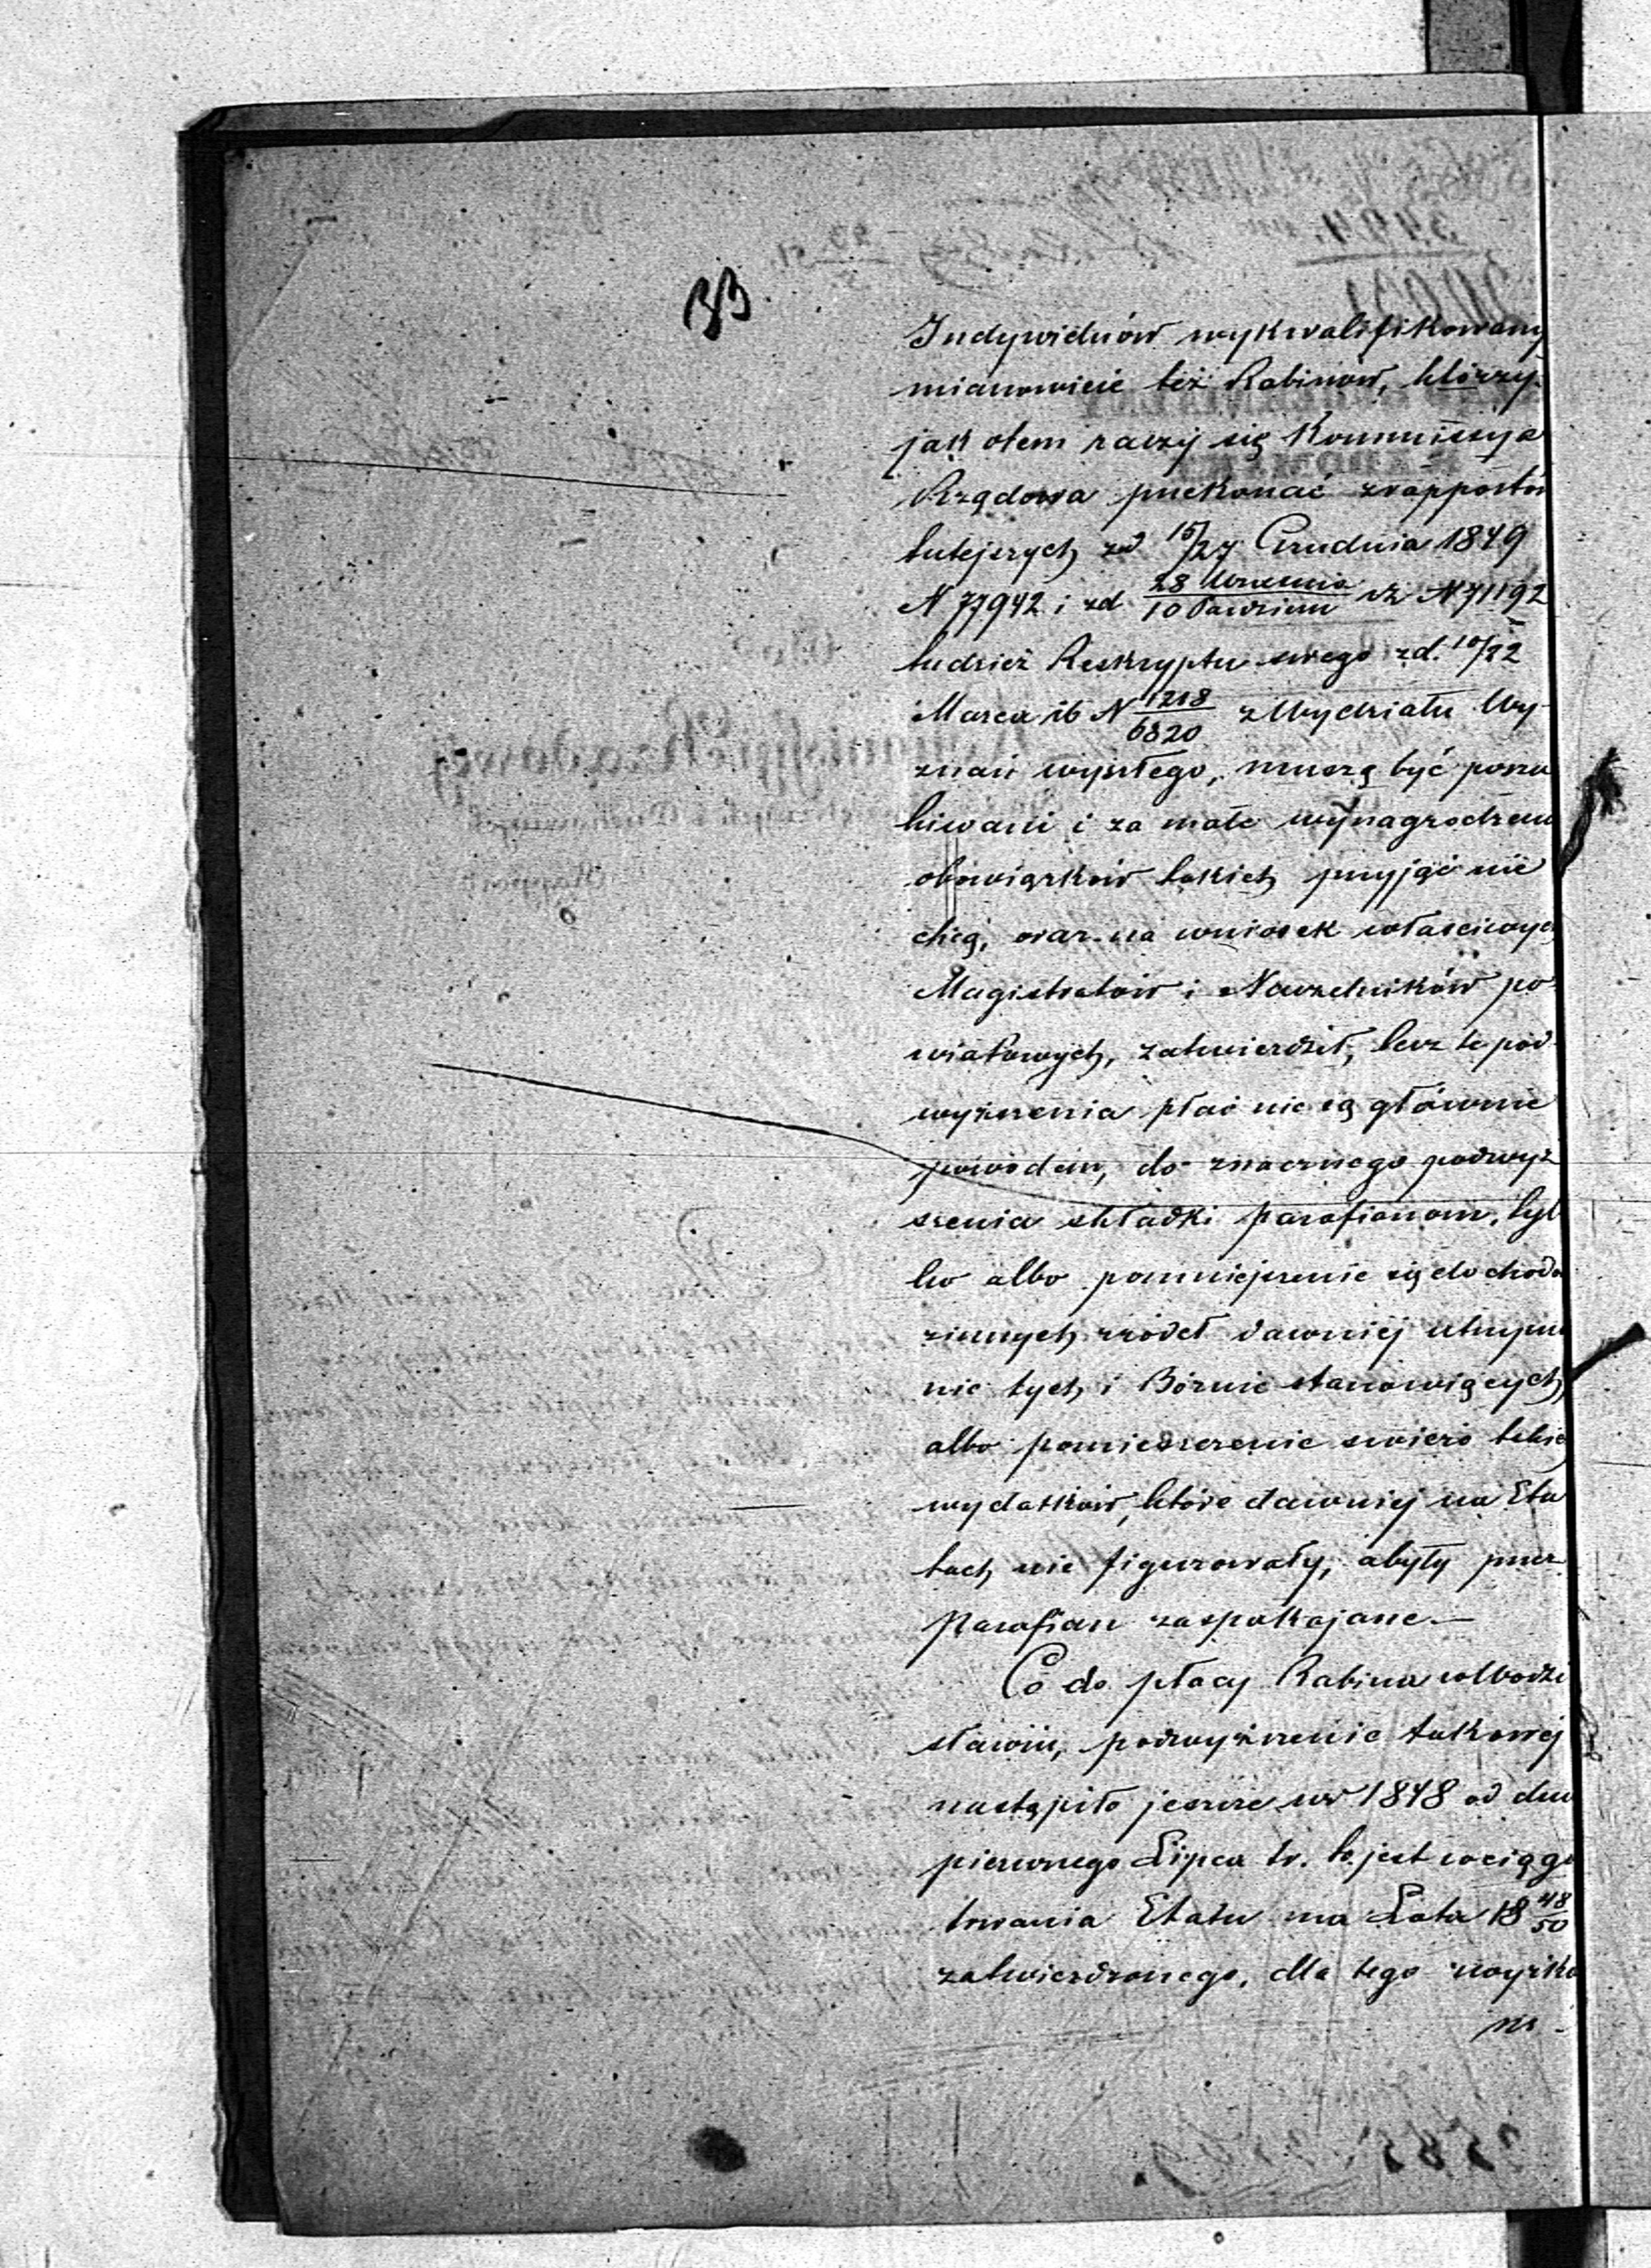 33
Indywiduów wykwalifikowany
mianowicie też Rabinów, którzy
jak otem raczy się Kommissya
Rządowa przekonać zrapportów
tutejszych zd 15/27 Grudnia 1849
N 77942 i zd 28 Września/10 Paździer N 71192
tudzież Reskryptu swego zd. 10/22
Marca ib N 1218/6820 z Wydziału Wy-
znań wyszłego, muszą być poszu
kiwani i za małe wynagrodzeni
obowiązków takich przyjąć nie
chcą, oraz na wniosek właściwych
Magistratów i Naczelników po-
wiatowych, zatwierdził, lecz te pod-
wyższenia płac nie są głównie
powodem, do znacznego podwyż
szenia składki parafianom, tyl
ko albo pomniejszenie się docho
zimnych źródeł dawniej utrzyma
nie tych i Bóżnic stanowiących
albo pomieszczenie świeżo takich
wydatków, które dawniej na Eta
tach nie figurowały, a były przez
Parafian zaspakajane.—
Co do płacy Rabina wWodzi
sławiu, podwyższenie takowej
nastąpiło jeszcze w 1848 od dnia
pierwszego Lipca tr. to jest wciągu
trwania Etatu na Lata 18 48/50
zatwierdzonego, dla tego zwyżka